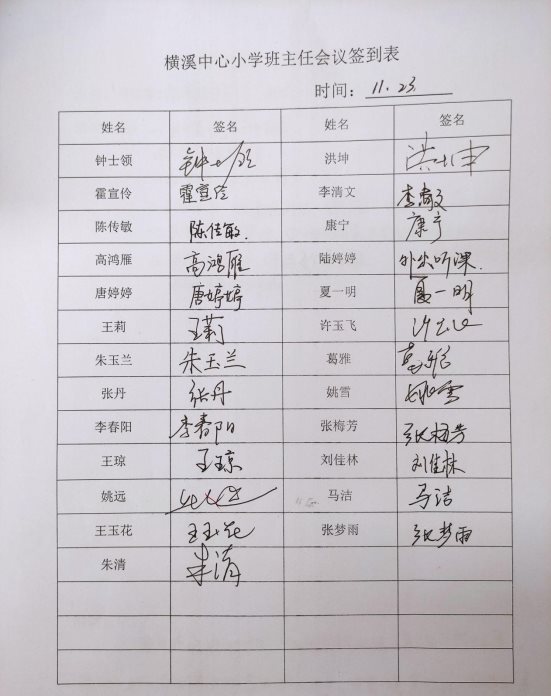 横溪中心小学班主任会议签到表
时间：11.23
姓名 签名 姓名 签名
钟士领 钟士领 洪坤 洪坤
霍宣伶 霍宣伶 李清文
陈传敏 陈传敏. 康宁 康宁
高鸿雁 高鸿雁 陆婷婷 外出听课.
唐婷婷 唐婷婷 夏一明 夏一明
王莉 王莉 许玉飞 许玉飞
朱玉兰 朱玉兰 葛雅 葛雅
张丹 张丹 姚雪 姚雪
李春阳 李春阳 张梅芳 张梅芳
王琼 王琼 刘佳林 刘佳林
姚远 马洁 马洁
王玉花 王玉花 张梦雨 张梦雨
朱清 朱清